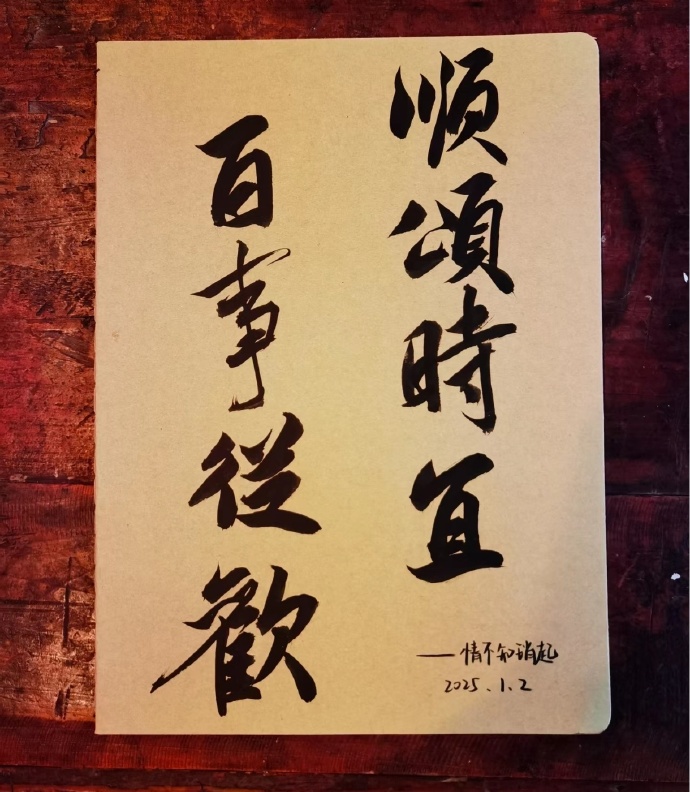 順頌時宜
百事從歡
——情不知
2025.1.2